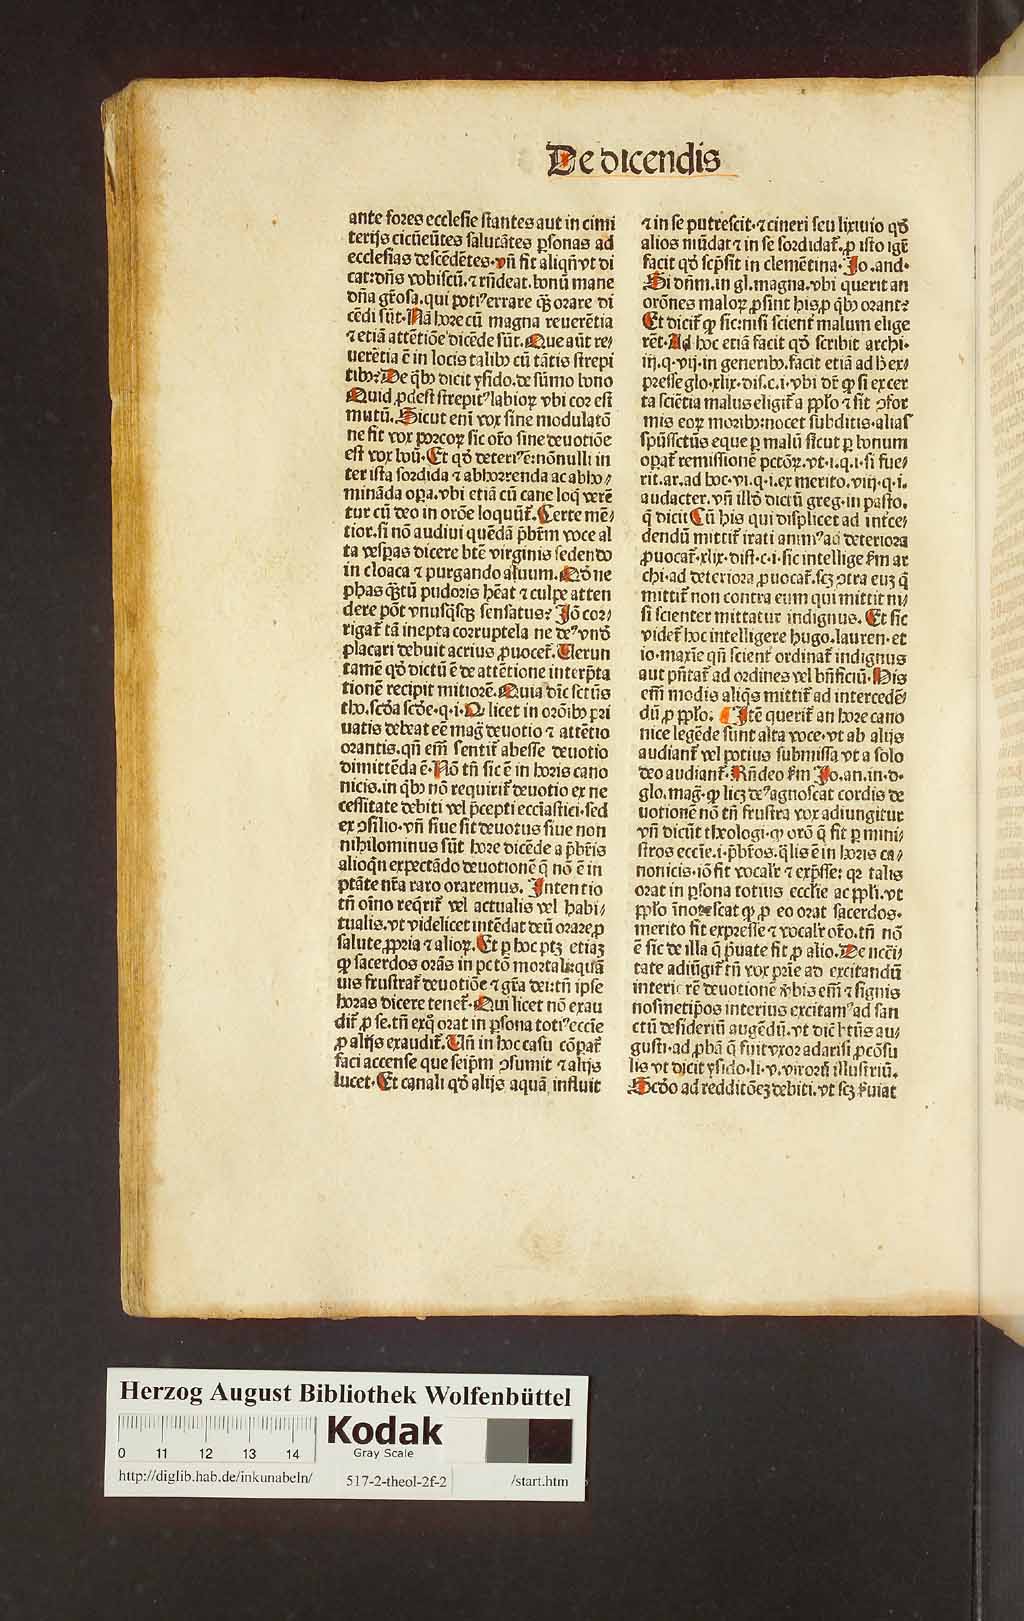 De dicendis
ante fores ecclesie stantes aut in cimi
terijs cicūeūtes salutātes ꝑsonas ad
ecclesias descēdētes. vn̄ fit aliqn̄ vt di
cat: dn̄s vobiscū. ⁊ rn̄deat. bonū mane
dn̄a gr̄osa. qui potiꝰ errare qͣꝫ orare di
cēdi sūt. Nā hore cū magna reuerētia
⁊ etiā attētiōe dicēde sūt. Que aūt re/
uerētia ē in locis talibꝰ cū tātis strepi
tibꝰ? De qͥbꝰ dicit ysido. de sūmo bono
Quid ꝓdest strepitꝰ labioꝝ vbi cor est
mutū. Sicut eni vox sine modulatō
ne fit vox porcoꝝ sic or̄o sine deuotiōe
est vox boū. Et qd̄ deteriꝰ ē: nōnulli in
ter ista sordida ⁊ abhorrenda ac abho/
mināda oꝑa. vbi etiā cū cane loqͥ verē
tur cū deo in orōe loquūt᷑. Certe mē/
tior. si nō audiui quēdā p̄bt̄m voce al
ta vesꝑas dicere btē virginis sedendo
in cloaca ⁊ purgando aluum. Qd̄ ne
phas qͣꝫtū pudoris hēat ⁊ culpe atten
dere pōt vnusqͥsqꝫ sensatus? Jō cor/
rigat᷑ tā inepta corruptela ne deꝰ vnd̄
placari debuit acrius ꝓuocet᷑. Uerun
tamē qd̄ dictū ē de attētione interp̄ta
tionē recipit mitiorē. Quia dīc sctūs
tho. scd̄a scd̄e. q. i. Qꝫ licet in orōibꝰ pri
uatis debeat eē maḡ deuotio ⁊ attētio
orantis. qn̄ em̄ sentit᷑ abesse deuotio
dimittēda ē. Nō tn̄ sic ē in horis cano
nicis. in qͥbꝰ nō requirit᷑ deuotio ex ne
cessitate debiti vel p̄cepti eccl̄astici. sed
ex ɔsilio. vn̄ siue sit deuotus siue non
nihilominus sūt hore dicēde a p̄bt̄is
alioqn̄ expectādo deuotionē q̄ nō ē in
ptāte nr̄a raro oraremus. Intentio
tn̄ oīno reqͥrit᷑ vel actualis vel habi/
tualis. vt videlicet intēdat deū orare, ꝓ
salute ꝓpria ⁊ alioꝝ. Et ꝑ hoc ptꝫ etiaꝫ
ꝙ sacerdos orās in pctō mortali: quā
uis frustrat᷑ deuotiōe ⁊ gr̄a dei: tn̄ ipse
horas dicere tenet᷑. Qui licet nō exau
dit᷑ ꝓ se. tn̄ exqͦ orat in ꝑsona totiꝰ eccīe
ꝓ alijs exaudit᷑. Un̄ in hoc casu cōꝑat᷑
faci accense que seip̄m ɔsumit ⁊ alijs
lucet. Et canali qd̄ alijs aquā influit
⁊ in se putrescit. ⁊ cineri seu lixiuio qd̄
alios mūdat ⁊ in se sordidat᷑. ꝓ isto igr̄
facit qd̄ scp̄sit in clemētina. Jo. and.
Si dn̄m. in gl. magna. vbi querit an
orōnes maloꝝ ꝓsint his, ꝓ qͥbꝰ orant?
Et dicit᷑ ꝙ sic: nisi scient᷑ malum elige
rēt. Ad hoc etiā facit qd̄ scribit archi.
iij. q. vij. in generibꝰ. facit etiā ad h̄ ex/
presse glo. xlix. dis. c. i. vbi dr̄ ꝙ si ex cer
ta sciētia malus eligit᷑ a ppl̄o ⁊ sit ɔfor
mis eoꝝ moribꝰ: nocet subditis. alias
spūssctūs eque ꝑ malū sicut ꝑ bonum
oꝑat᷑ remissionē pctōꝝ. vt. i. q. i. si fue/
rit. ar. ad hoc. vi. q. i. ex merito. viij. q. i.
audacter. vn̄ illd̄ dictū greg. in pasto.
q̄ dicit Cū his qui displicet ad int᷑ce/
dendū mittit᷑ irati animꝰ ad deteriora
ꝓuocat᷑. xlix. dist. c. i. sic intellige ẜm ar
chi. ad deteriora ꝓuocat᷑. scꝫ ɔtra euꝫ q̄
mittit᷑ non contra eum qui mittit ni/
si scienter mittatur indignus. Et sic
videt᷑ hoc intelligere hugo. lauren. et
io. maxīe qn̄ scient᷑ ordinat᷑ indignus
aut pn̄tat᷑ ad ordines vel bn̄ficiū. His
em̄ modis aliqͥs mittit᷑ ad intercedē/
dū ꝓ ppl̄o. Itē querit᷑ an hore cano
nice legēde sunt alta voce. vt ab alijs
audiant᷑ vel potius submissa vt a solo
deo audiant᷑. Rn̄deo ẜm Jo. an. in. d.
glo. maḡ. ꝙ licꝫ deꝰ agnoscat cordis de
uotionē nō tn̄ frustra vox adiungitur
vn̄ dicūt theologi. ꝙ orō q̄ fit ꝑ mini/
stros eccīe. i. p̄bt̄os. qͣlis ē in horis ca/
nonicis. iō fit vocalr̄ ⁊ exp̄sse: qꝛ talis
orat in ꝑsona totius eccīie ac ppl̄i. vt
ppl̄o īnotescat ꝙ ꝓ eo orat sacerdos.
merito fit expresse ⁊ vocalr̄ or̄o. tn̄ nō
ē sic de illa q̄ p̄uate fit ꝓ alio. De nec̄i
tate adiūgit᷑ tn̄ vox p̄ue ad excitandū
interiorē deuotionē vbis em̄ ⁊ signis
nosmetip̄os interius excitamꝰ ad san
ctū desideriū augēdū. vt dic̄ btūs au/
gusti. ad ꝓbā q̄ fuit vxor adarisi ꝓcōsu
lis vt dicit ysido. li. v. viroꝝ illustriū.
Scd̄o ad redditōeꝫ debiti. vt scꝫ ẜuiat
Herzog August Bibliothek Wolfenbüttel
0 11 12 13 14
Kodak
Gray Scale
http://diglib.hab.de/inkunabeln/ 517-2-theol-2f-2 /start.htm